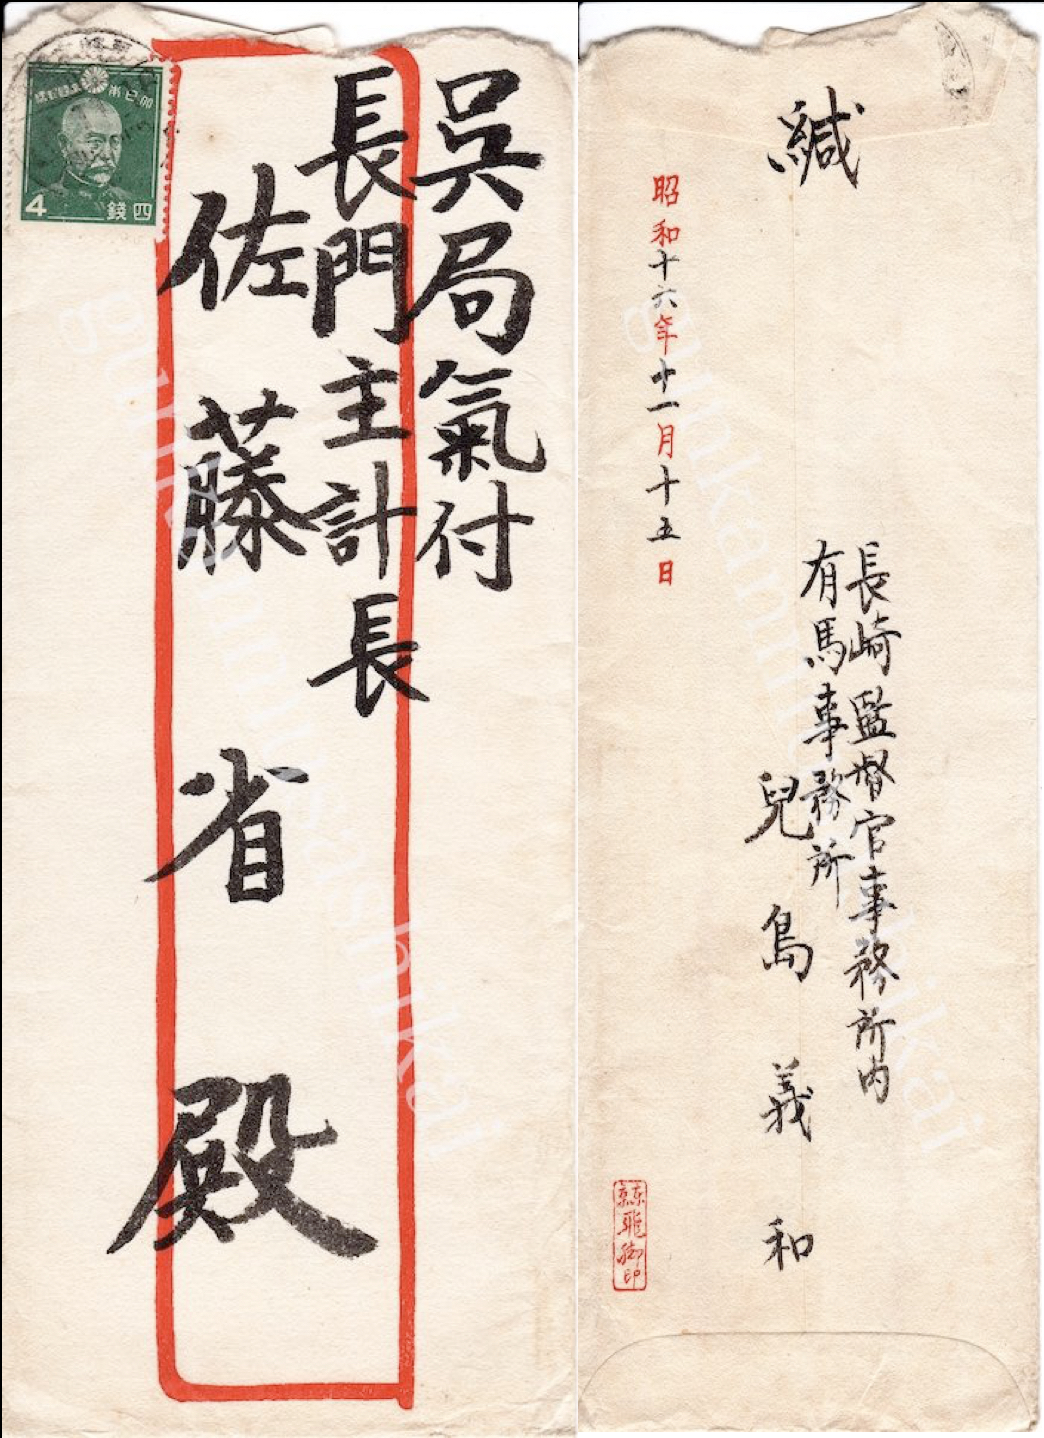 呉局氣付
長門主計長
佐藤省殿
4 錢四
緘
長崎監督官事務所内
有馬事務所
兒島義和
昭和十六年十一月十五日